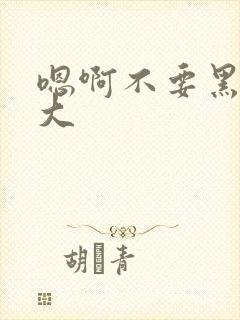 嗯啊不要黑
大
胡青